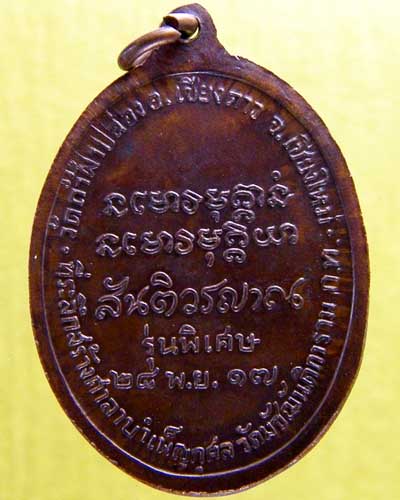 วัดถ้ำผาปล่อง อ.เชียงดาว จ.เชียงใหม่
นโมวิมุตฺตานํ
นโมวิมุตฺติยา
สันติวรญาณ
รุ่นพิเศษ
๒๘ พ.ย. ๑๗
ที่ระลึกสร้างศาลาบำเพ็ญกุศล วัดมัชฌันติการาม ก.ท.